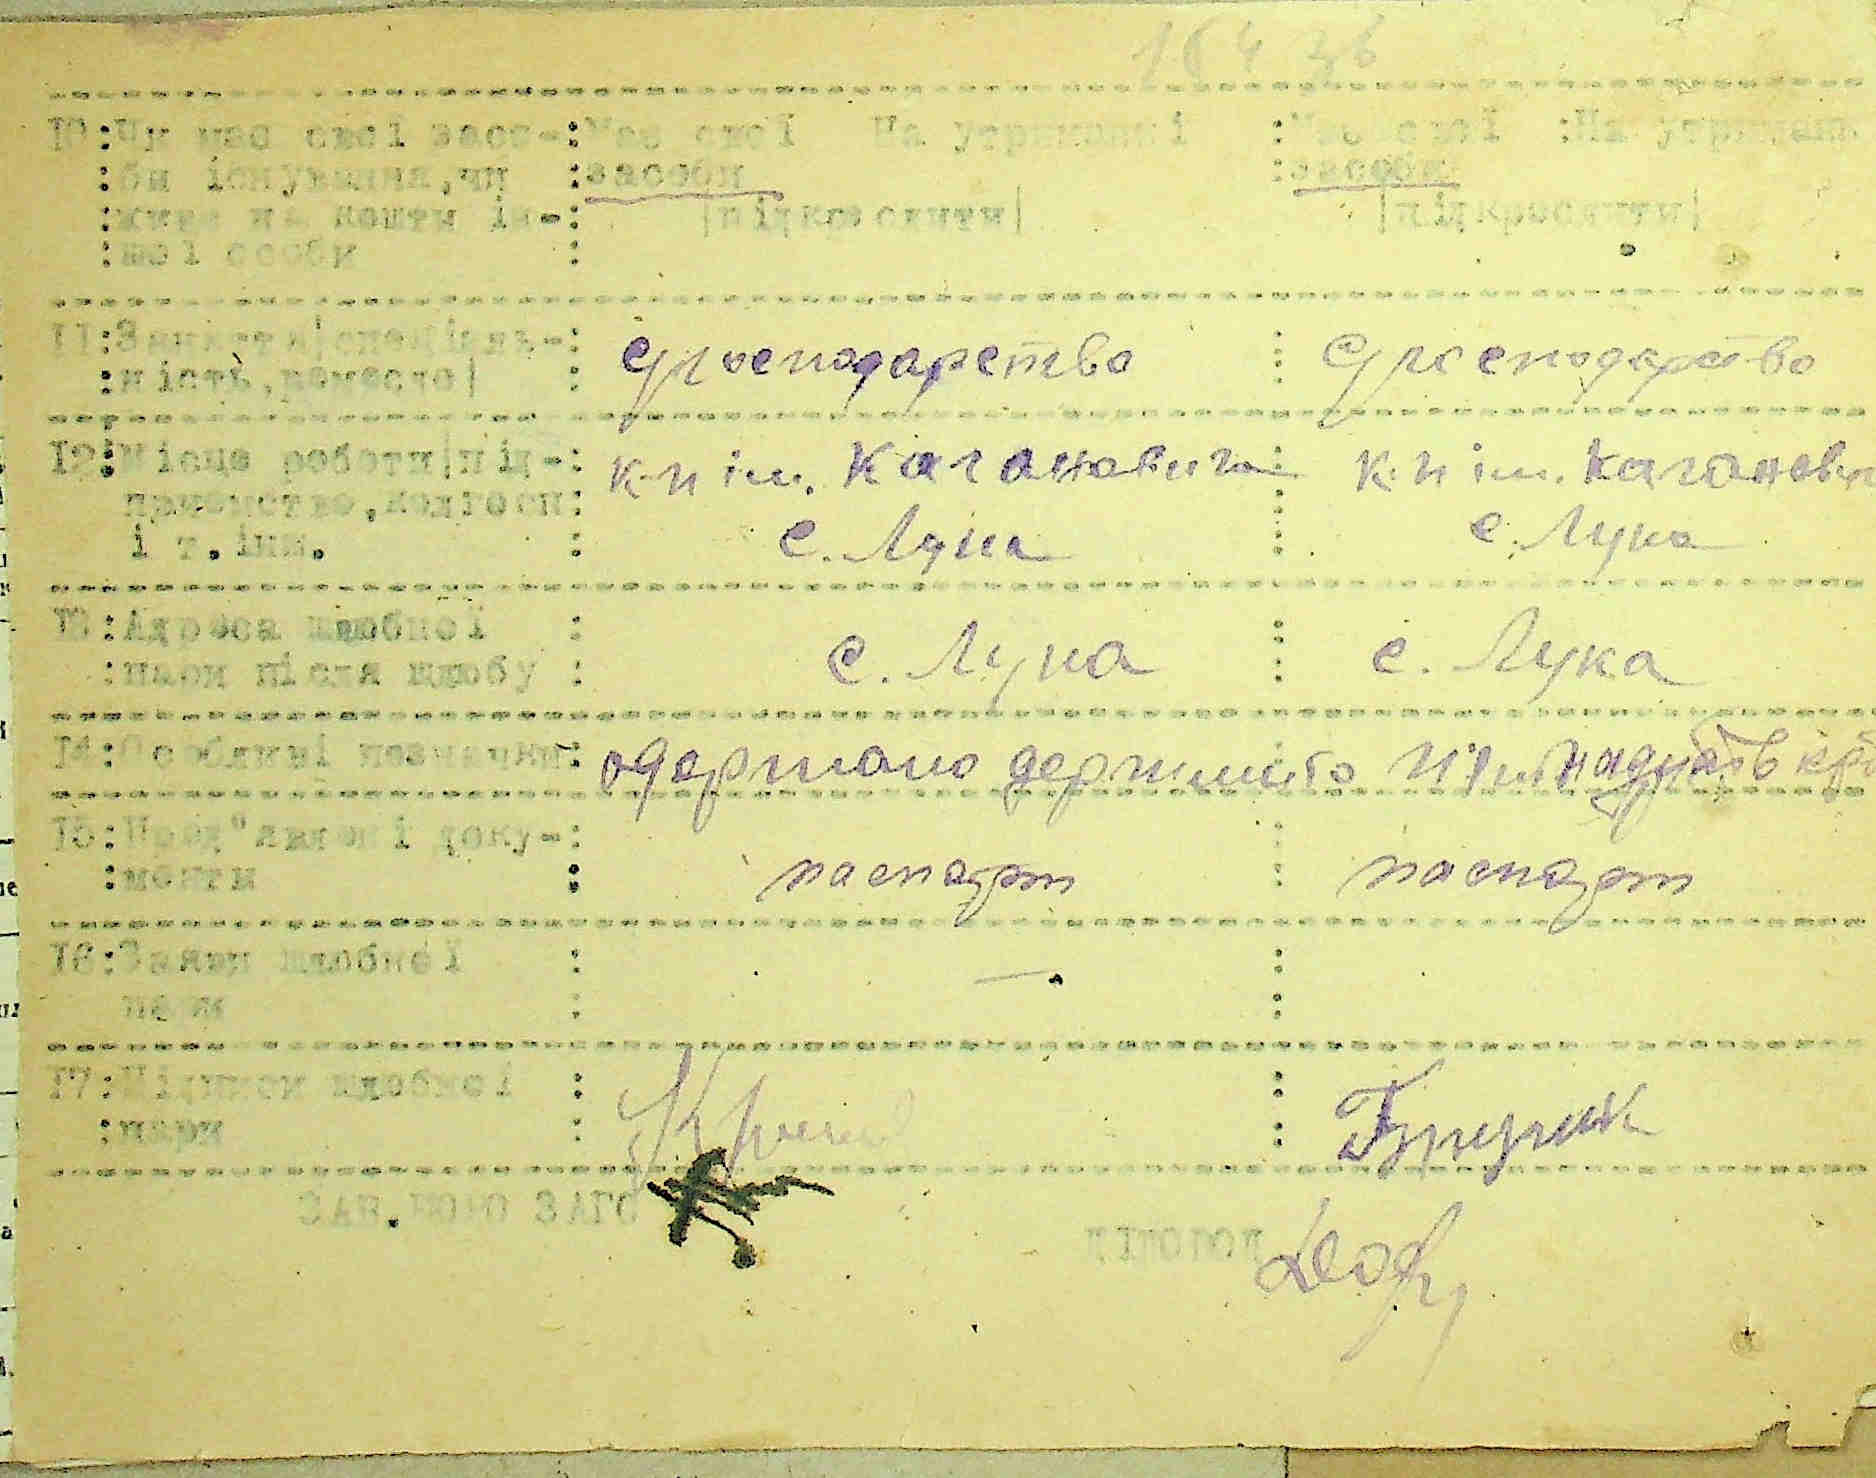 10:Чи має свої засо-:Має свої На утриманні :Має свої :На утриманн
:би існування,чи :засоби :засоби
:живе на кошти ін-: |підкреслити| |підкреслити|
:шої особи :
11:Заняття|спеціаль-: с/господарство : с/господарство
:ність,ремесло| :
12:Місце роботи|під-: к-п ім. Кагановича : к-п ім. Каганови
приємство,колгосп: с. Лука : с. Лука
і т.інш. :
13:Адреса шлюбної : с. Лука : с. Лука
:пари після шлюбу :
14:Особливі позначки: одержано держмито П'ятнадцять крб
15:Пред"явлені доку-: паспорт : паспорт
:менти :
16:Заяви шлюбної : — :
пари :
17:Підписи шлюбної : :
:пари :
ЗАВ.БЮРО ЗАГС
ДІЛОВОД